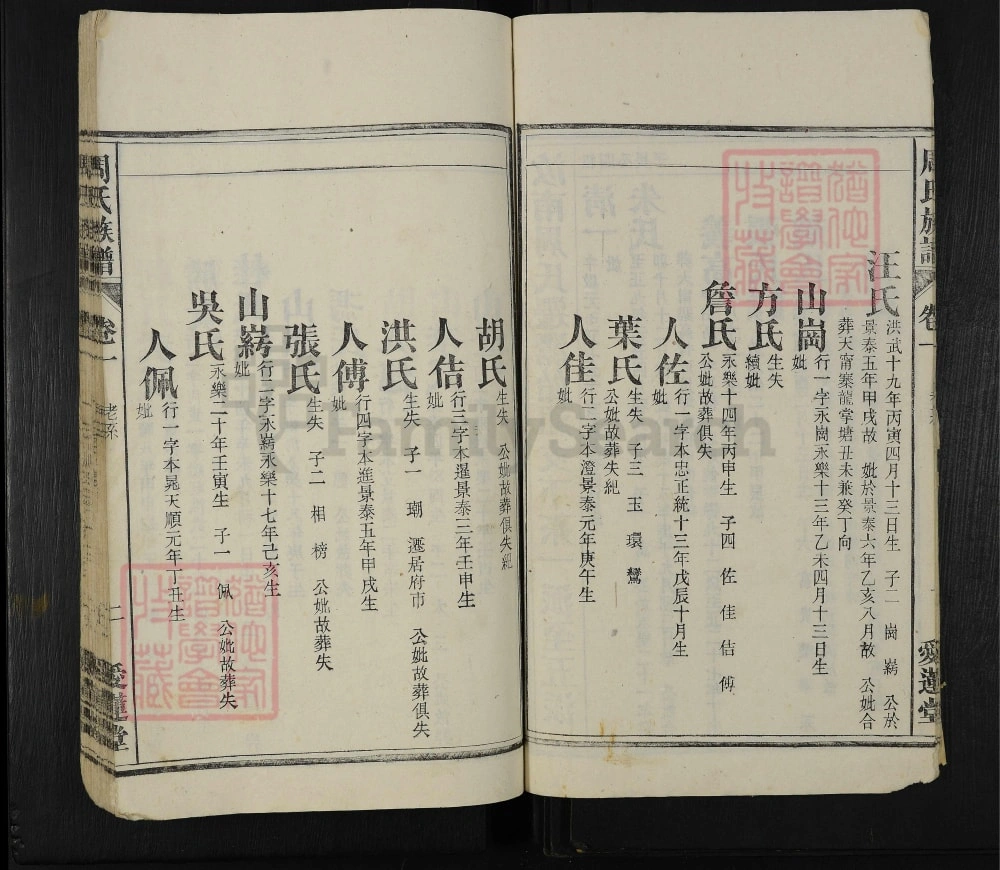 周氏族譜
卷一
愛蓮堂
汪氏
洪武十九年丙寅四月十三日生 子二 崗 嵭 公於
景泰五年甲戌故 妣於景泰六年乙亥八月故 公妣合
葬天甯寨龍掌塘丑未兼癸丁向
山崗
行一字永崗永樂十三年乙未四月十三日生
妣
方氏
生失
續妣
詹氏
永樂十四年丙申生 子四 佐 佳 佶 傅
公妣故葬俱失
人佐
行一字本忠正統十三年戊辰十月生
妣
葉氏
生失 子三 玉 環 鸞
公妣故葬失紀
人佳
行二字本澄景泰元年庚午生
妣
胡氏
生失 公妣故葬俱失紀
人佶
行三字本暹景泰三年壬申生
妣
洪氏
生失 子一 瑚 遷居府市 公妣故葬俱失
人傅
行四字本進景泰五年甲戌生
妣
張氏
生失 子二 相 榜 公妣故葬失
山嵭
行二字永嵭永樂十七年己亥生
妣
吳氏
永樂二十年壬寅生 子一 佩 公妣故葬失
人佩
行一字本晃天順元年丁丑生
妣
周氏族譜
卷一
老系
二
愛蓮堂
FamilySearch